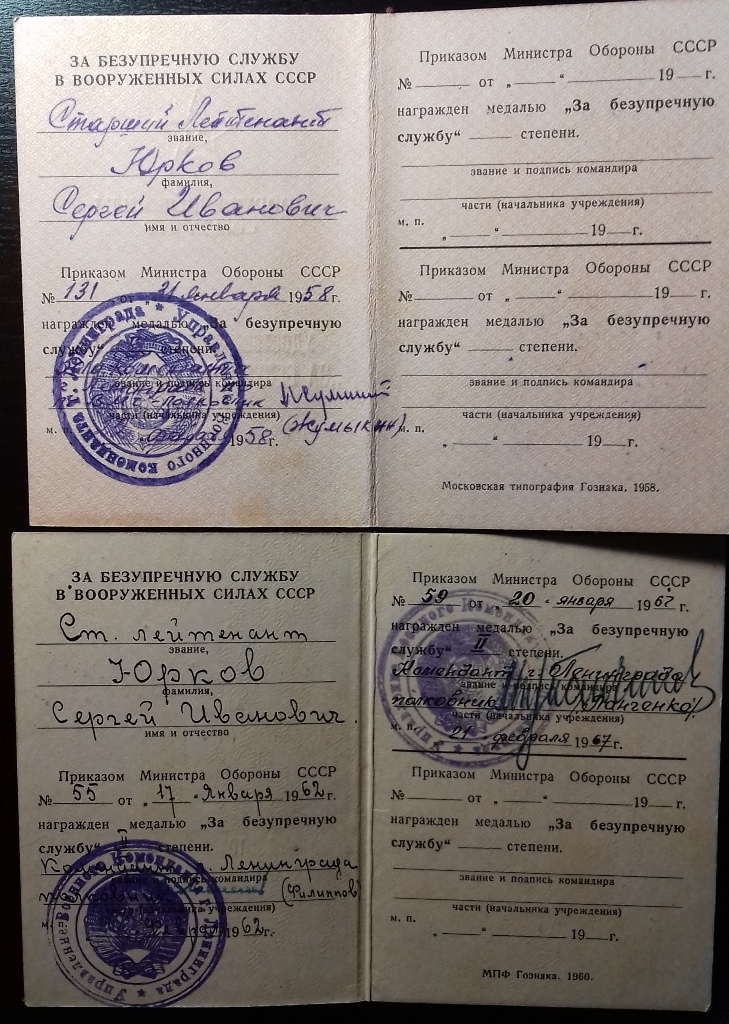 ЗА БЕЗУПРЕЧНУЮ СЛУЖБУ
В ВООРУЖЕННЫХ СИЛАХ СССР
Старший Лейтенант
звание,
Юрков
фамилия,
Сергей Иванович
имя и отчество
Приказом Министра Обороны СССР
№ 131 от „31 января 1958 г.
награжден медалью „За безупречную
службу“ степени.
звание и подпись командира
полковник
части (начальника учреждения)
(Жумыкин)
м. п. 1958 г.
Управление Военного Коменданта г. Ленинграда
Приказом Министра Обороны СССР
№ от „ “ 19 г.
награжден медалью „За безупречную
службу“ степени.
звание и подпись командира
части (начальника учреждения)
м. п.
„ “ 19 г.
Приказом Министра Обороны СССР
№ от „ “ 19 г.
награжден медалью „За безупречную
службу“ степени.
звание и подпись командира
части (начальника учреждения)
м. п.
„ “ 19 г.
Московская типография Гознака. 1958.
ЗА БЕЗУПРЕЧНУЮ СЛУЖБУ
В ВООРУЖЕННЫХ СИЛАХ СССР
Ст. лейтенант
звание,
Юрков
фамилия,
Сергей Иванович.
имя и отчество
Приказом Министра Обороны СССР
№ 55 от „17“ Января 1962 г.
награжден медалью „За безупречную
службу“ II степени.
Комендант г. Ленинграда
звание и подпись командира
полковник (Филиппов)
части (начальника учреждения)
м. п. 1962 г.
Управление Военного Коменданта г. Ленинграда
Приказом Министра Обороны СССР
№ 59 от „20“ января 1967 г.
награжден медалью „За безупречную
службу“ II степени.
Комендант г. Ленинграда
звание и подпись командира
полковник (Панченко)
части (начальника учреждения)
м. п.
„21“ февраля 1967 г.
Приказом Министра Обороны СССР
№ от „ “ 19 г.
награжден медалью „За безупречную
службу“ степени.
звание и подпись командира
части (начальника учреждения)
м. п.
„ “ 19 г.
МПФ Гознака. 1960.